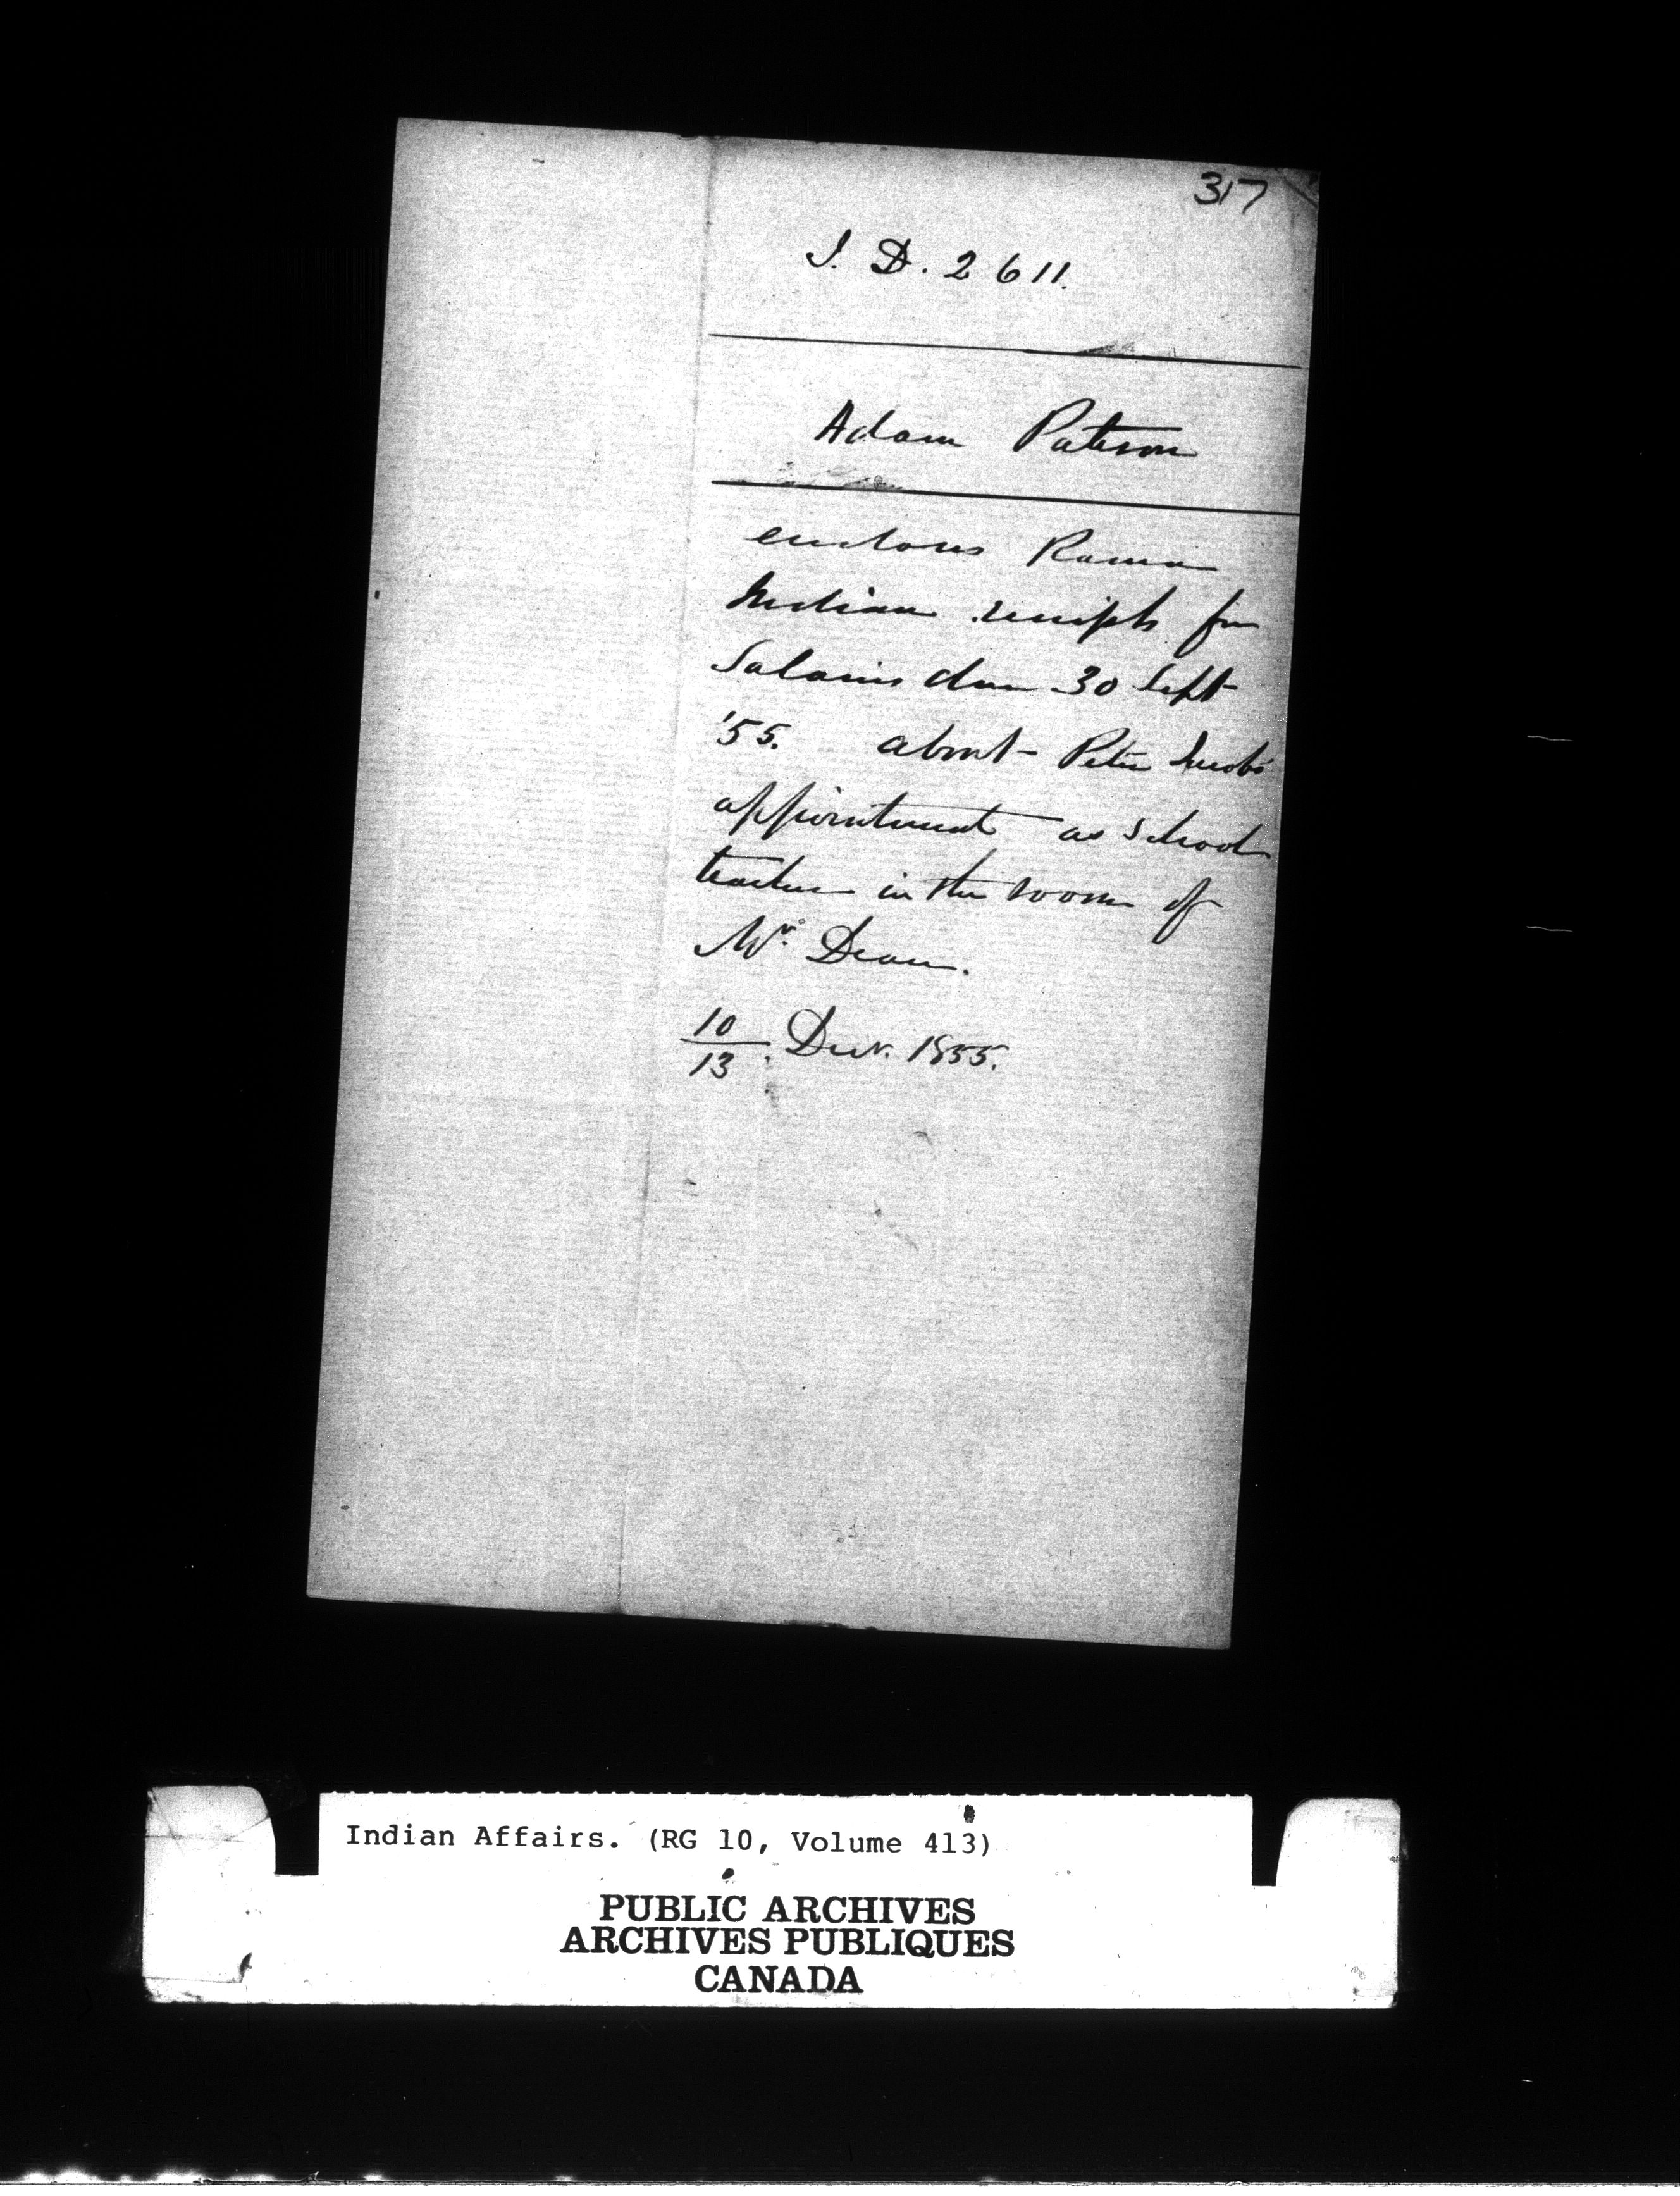 317
I. D. 2611.
Adam Paterson
encloses Rama
Indian receipts for
Salaries due 30 Sept
'55. about Peter Jacobs'
appointment as School
teacher in the room of
Mr. Dean.
10/13. Decr. 1855.
Indian Affairs. (RG 10, Volume 413)
PUBLIC ARCHIVES
ARCHIVES PUBLIQUES
CANADA